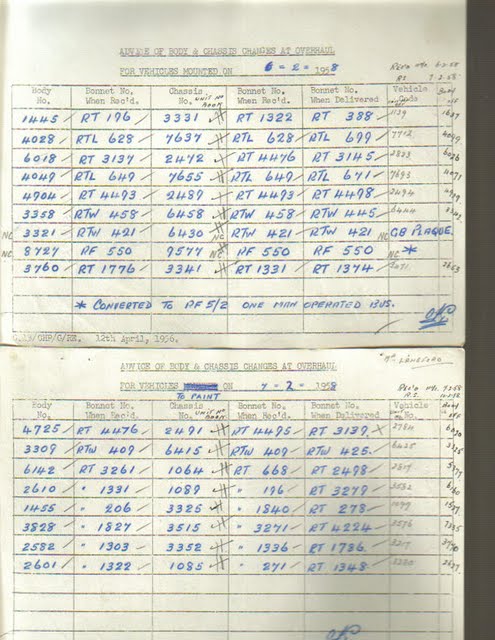 ADVICE OF BODY & CHASSIS CHANGES AT OVERHAUL
FOR VEHICLES MOUNTED ON 6 - 2 - 1958
Rec'd 6-2-58
7-2-58
Body No. Bonnet No. When Rec'd. Chassis No. UNIT NO Bonnet No. When Rec'd. Bonnet No. When Delivered Vehicle Body
1445 RT 196 3331 RT 1322 RT 388
4028 RTL 628 7637 RTL 628 RTL 699 7712
6018 RT 3137 2472 RT 4476 RT 3145 2823
4049 RTL 649 7655 RTL 649 RTL 671 7693
4904 RT 4493 2489 RT 4493 RT 4498 2494
3358 RTW 458 6458 RTW 458 RTW 445 6444
NC 3321 RTW 421 6430 NC RTW 421 RTW 421 NC GB PLAQUE.
NC 8727 RF 550 9577 NC RF 550 RF 550 NC *
3760 RT 1776 3341 RT 1331 RT 1374
* CONVERTED TO RF 5/2 ONE MAN OPERATED BUS.
12th April, 1956.
ADVICE OF BODY & CHASSIS CHANGES AT OVERHAUL
FOR VEHICLES ON 7 - 2 - 1958
TO PAINT
Body No. Bonnet No. When Rec'd. Chassis No. UNIT NO Bonnet No. When Rec'd. Bonnet No. When Delivered Vehicle No.
4725 RT 4476 2491 RT 4495 RT 3139 2784
3309 RTW 409 6415 RTW 409 RTW 425 6425
6142 RT 3261 1064 RT 668 RT 2498
2610 " 1331 1089 " 196 RT 3279
1455 " 206 3325 " 1840 RT 278
3828 " 1827 3515 " 3271 RT 4224
2582 " 1303 3352 " 1336 RT 1736
2601 " 1322 1085 " 271 RT 1348